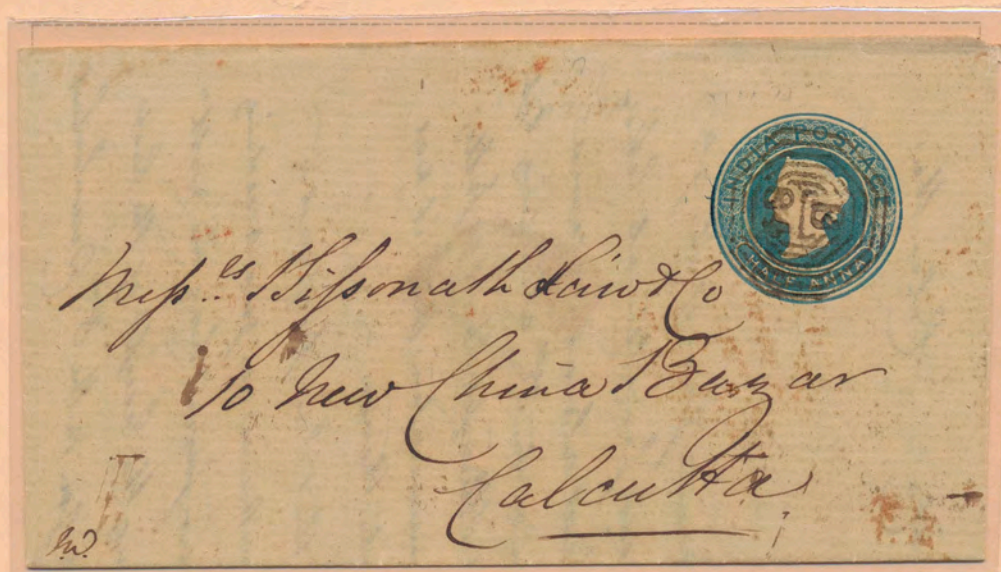 INDIA POSTAGE
HALF ANNA
Messrs Bissonath Law & Co
10 New China Bazar
Calcutta